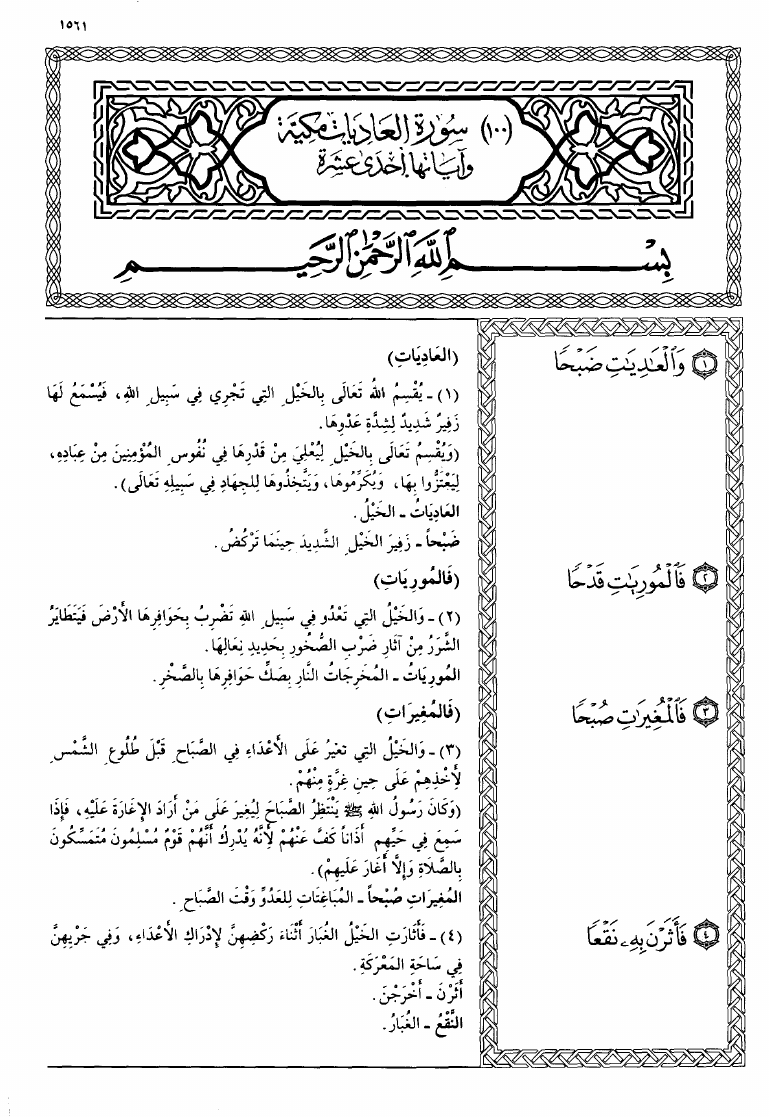 ١٥٦١
(١٠٠) سُورَة العَادِيَات مَكِيَّة
وَآيَاتهَا إِحْدَى عَشَرَة
بِسْمِ ٱللَّهِ ٱلرَّحْمَٰنِ ٱلرَّحِيمِ
١ وَٱلْعَٰدِيَٰتِ ضَبْحًا
(العَادِيَاتِ)
(١) - يُقْسِمُ اللهُ تَعَالَى بِالخَيْلِ التِي تَجْرِي فِي سَبِيلِ اللهِ، فَيُسْمَعُ لَهَا
زَفِيرٌ شَدِيدٌ لِشِدَّةِ عَدْوِهَا.
(وَيُقْسِمُ تَعَالَى بِالخَيْلِ لِيُعْلِيَ مِنْ قَدْرِهَا فِي نُفُوسِ المُؤْمِنِينَ مِنْ عِبَادِهِ،
لِيَعْتَزُّوا بِهَا، وَيُكَرِّمُوهَا، وَيَتَّخِذُوهَا لِلجِهَادِ فِي سَبِيلِهِ تَعَالَى).
العَادِيَاتُ - الخَيْلُ.
ضَبْحاً - زَفِيرَ الخَيْلِ الشَّدِيدَ حِينَمَا تَرْكُضُ.
٢ فَٱلْمُورِيَٰتِ قَدْحًا
(فَالمُورِيَاتِ)
(٢) - وَالخَيْلُ التِي تَعْدُو فِي سَبِيلِ اللهِ تَضْرِبُ بِحَوَافِرِهَا الأَرْضَ فَيَتَطَايَرُ
الشَّرَرُ مِنْ آثَارِ ضَرْبِ الصُّخُورِ بِحَدِيدِ نِعَالِهَا.
المُورِيَاتُ - المُخْرِجَاتُ النَّارِ بِصَكِّ حَوَافِرِهَا بِالصَّخْرِ.
٣ فَٱلْمُغِيرَٰتِ صُبْحًا
(فَالمُغِيرَاتِ)
(٣) - وَالخَيْلُ التِي تغيْرُ عَلَى الأَعْدَاءِ فِي الصَّبَاحِ قَبْلَ طُلُوعِ الشَّمْسِ
لأَخْذِهِمْ عَلَى حِينِ غِرَّةٍ مِنْهُمْ.
(وَكَانَ رَسُولُ اللهِ ﷺ يَنْتَظِرُ الصَّبَاحَ لِيُغِيرَ عَلَى مَنْ أَرَادَ الإِغَارَةَ عَلَيْهِ، فَإِذَا
سَمِعَ فِي حَيِّهِمِ أَذَاناً كَفَّ عَنْهُمْ لأَنَّهُ يُدْرِكُ أَنَّهُمْ قَوْمٌ مُسْلِمُونَ مُتَمَسِّكُونَ
بِالصَّلَاةِ وَإِلَّا أَغَارَ عَلَيهِمْ).
المُغِيرَاتِ صُبْحاً - المُبَاغِتَاتِ لِلعَدُوِّ وَقْتَ الصَّبَاحِ.
٤ فَأَثَرْنَ بِهِۦ نَقْعًا
(٤) - فَأَثَارَتِ الخَيْلُ الغُبَارَ أَثْنَاءَ رَكْضِهِنَّ لإِدْرَاكِ الأَعْدَاءِ، وَفِي جَرْيِهِنَّ
فِي سَاحَةِ المَعْرَكَةِ.
أَثَرْنَ - أَخْرَجْنَ.
النَّقْعُ - الغُبَارُ.